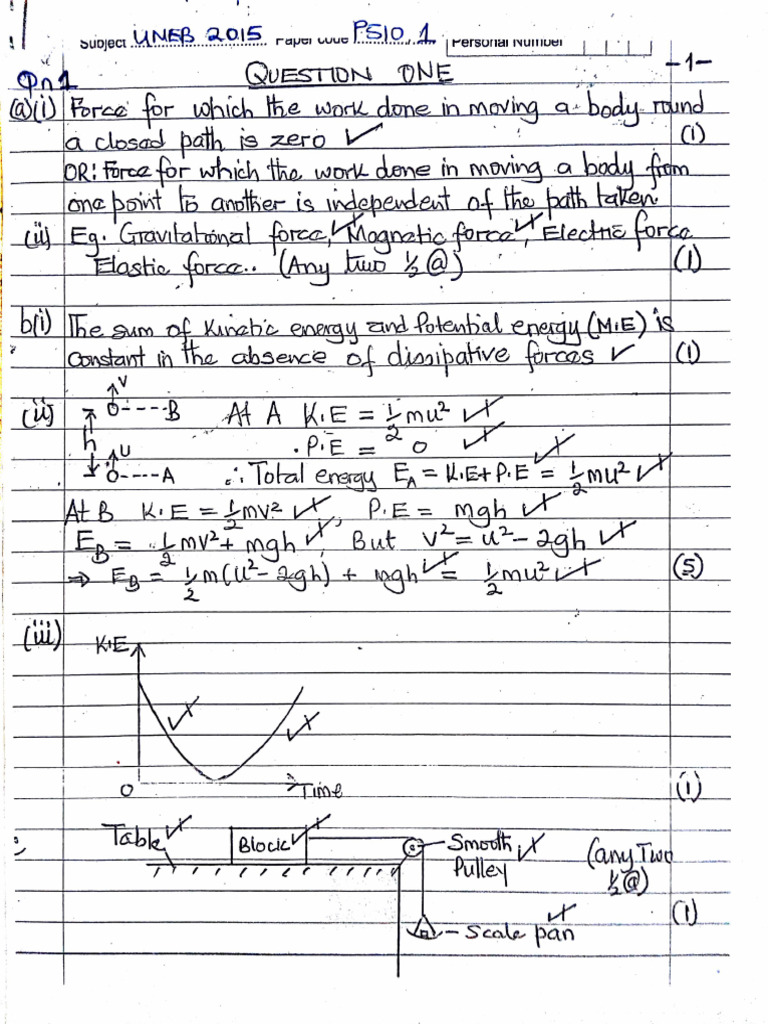 Subject UNEB 2015 Paper code P510 1 Personal Number
-1-
Qn1 QUESTION ONE
(a)(i) Force for which the work done in moving a body round
a closed path is zero ✓ (1)
OR: Force for which the work done in moving a body from
one point to another is independent of the path taken.
(ii) Eg. Gravitational force, Magnetic force, Electric force
Elastic force.. (Any two ½@) (1)
b(i) The sum of kinetic energy and Potential energy (M.E) is
constant in the absence of dissipative forces ✓ (1)
(ii) V
B At A K.E = ½mu²
h P.E = 0
U
A ∴ Total energy E_A = K.E + P.E = ½mu²
At B K.E = ½mv², P.E = mgh
E_B = ½mv² + mgh, But v² = u² - 2gh
⇒ E_B = ½m(u² - 2gh) + mgh = ½mu² (5)
(iii) K.E
0 Time (1)
Table Block Smooth (any Two
Pulley ½@)
(1)
Scale pan